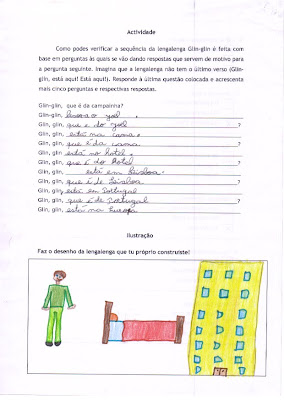 Actividade
Como podes verificar a sequência da lengalenga Glin-glin é feita com
base em perguntas às quais se vão dando respostas que servem de motivo para
a pergunta seguinte. Imagina que a lengalenga não tem o último verso (Glin-
glin, está aqui! Está aqui!). Responde à última questão colocada e acrescenta
mais cinco perguntas e respectivas respostas.
Glin-glin, que é da campainha?
Glin, glin, levou-a o .
Glin, glin, que é do ?
Glin, glin, está na cama .
Glin, glin, que é da cama ?
Glin, glin, está no hotel .
Glin, glin, que é do hotel ?
Glin, glin, está em Lisboa .
Glin, glin, que é de Lisboa ?
Glin, glin, está em Portugal
Glin, glin, que é de Portugal ?
Glin, glin, está na Europa
Ilustração
Faz o desenho da lengalenga que tu próprio construíste!